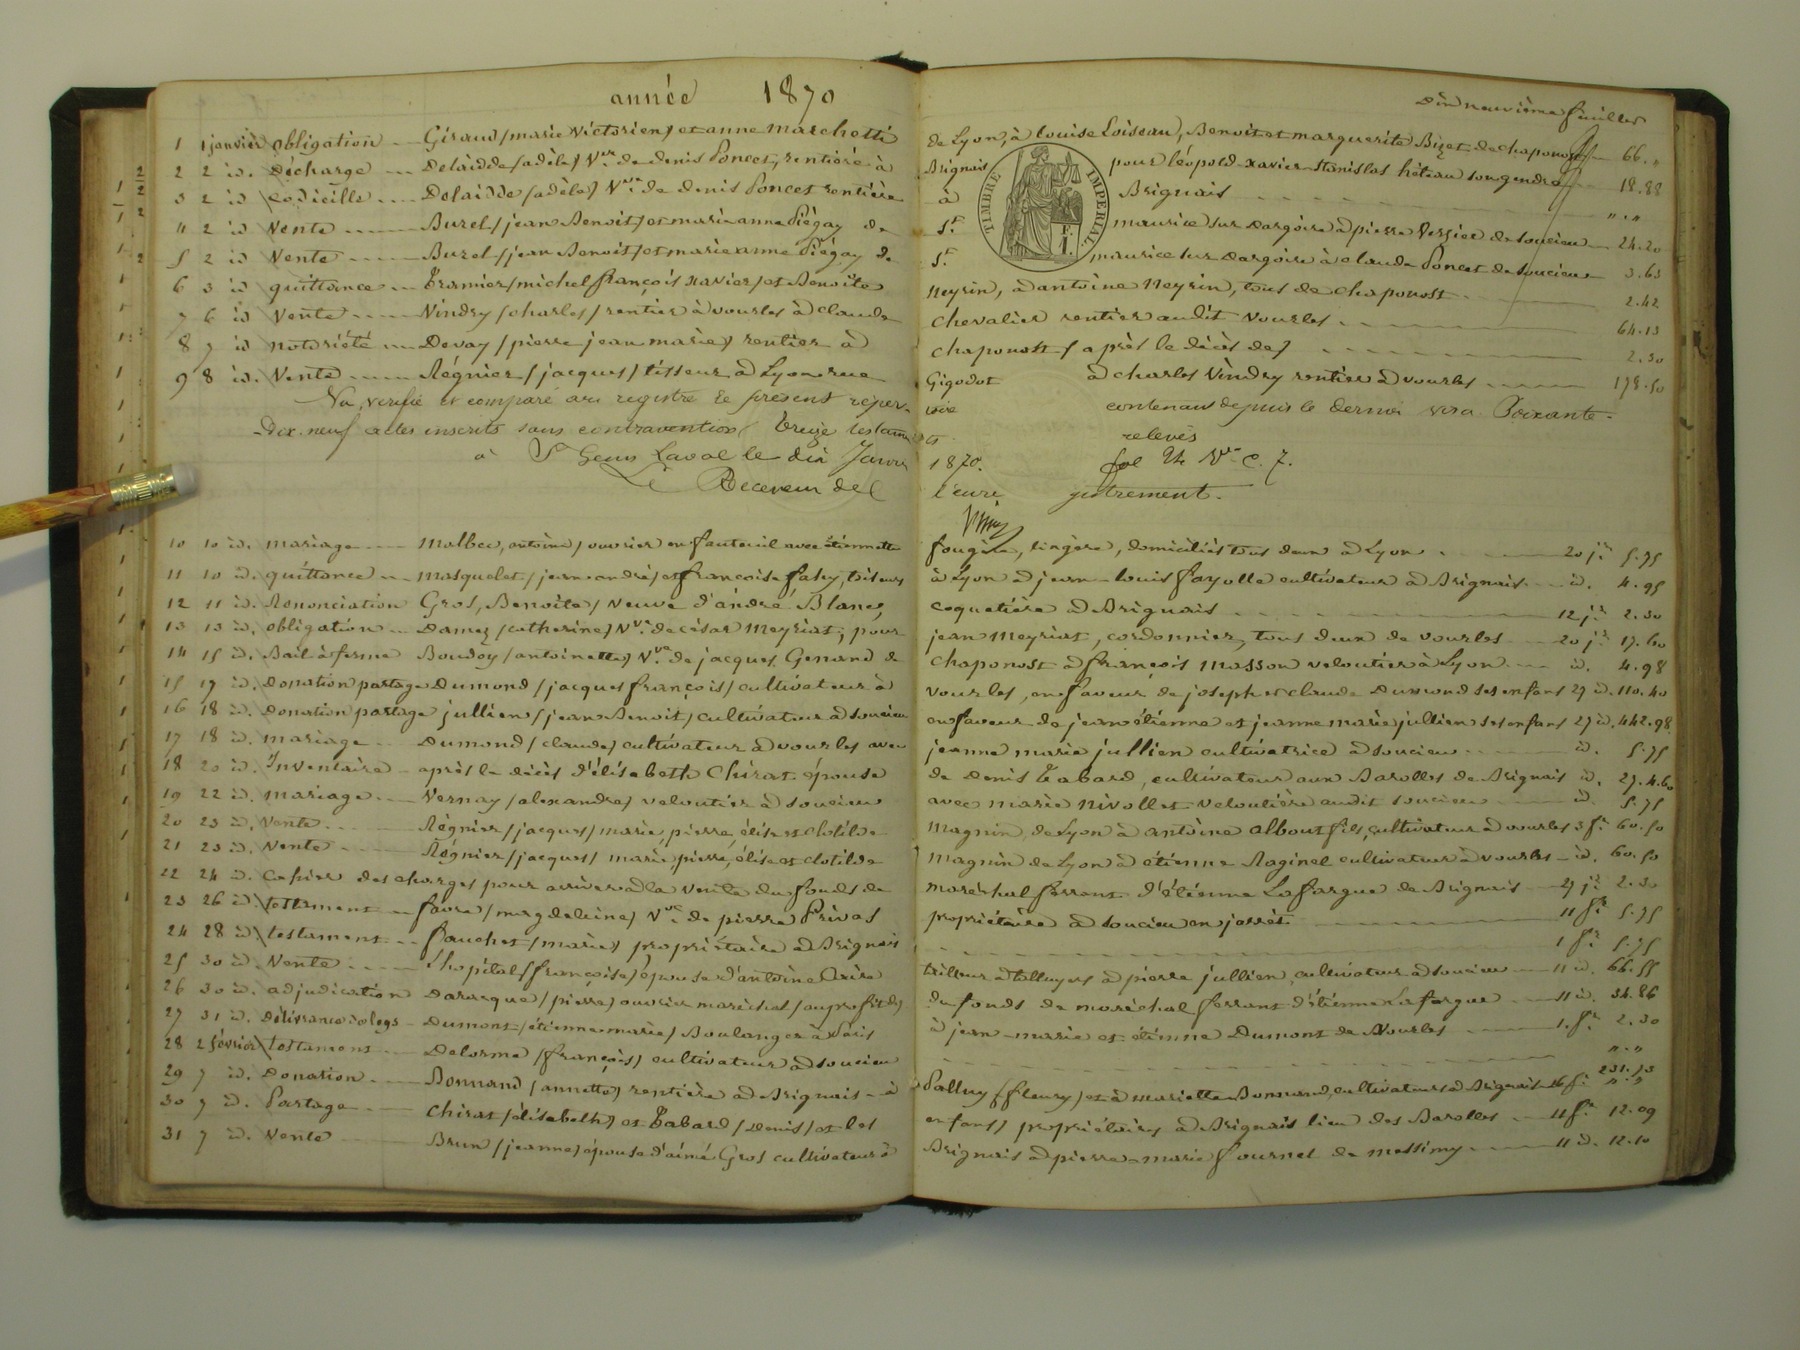 année 1870
Dix neuvième feuillet
1 1 janvier obligation Giraud / marie Victorien / et anne Marchetti de Lyon, à louise Loiseau, Benoit et marguerite Bizet de chaponost 66.„
2 2 id. Décharge Delaidde / adèle / Vve de denis Poncet, rentière à Brignais pour léopold xavier Stanislas héteau son gendre 18.88
3 2 id Codicille Delaidde / adèle / Vve de denis Poncet rentière à Brignais „.„
4 2 id Vente Burel / jean Benoit / et marie anne Piégay de St maurice sur dargoire à pierre Verzier de soucieu 24.20
5 2 id Vente Burel / jean Benoit / et marie anne Piégay de St maurice sur dargoire à claude Poncet de soucieu 3.63
TIMBRE IMPERIAL
F. 1.
6 3 id quittance Tramier / michel françois xavier / et Benoite Neyrin, à antoine Neyrin, tous de chaponost 2.42
7 6 id Vente Vindry / charles / rentier à vourles à claude Chevalier rentier audit Vourles 64.13
8 7 id notoriété Devay / pierre jean marie / rentier à chaponost / après le décès de / 2.30
9 8 id. Vente Régnier / jacques / tisseur à Lyon rue Gigodot à charles Vindry rentier à vourles 178.50
Vu, vérifié et comparé au registre le présent répertoire contenant depuis le dernier visa Soixante
Dix-neuf actes inscrits sans contravention Treize testaments relevés
à St Genis Laval le dix Janvier 1870. fol 24 Vo C. 7.
Le Receveur de l'enregistrement.
10 10 id. mariage Malbec, antoine / ouvrier en fauteuil avec étiennette fougère, lingère, domiciliés tous deux à Lyon 20 jr 5.75
11 10 id. quittance Masquelet / jean andré / et françoise faby, tiseurs à Lyon à jean-louis fayolle cultivateur à Brignais id. 4.95
12 11 id. Renonciation Gros, Benoite / Veuve d'andré Blanc, coquetière à Brignais 12 jr 2.30
13 13 id. obligation Damez / catherine / Vve de césar Meyriat, pour jean Meyriat, cordonnier, tous deux de vourles 20 jr 17.60
14 15 id. Bail à ferme Boudoy / antoinette / Vve de jacques Genand de Chaponost à françois Masson veloutier à Lyon id. 4.98
15 17 id. Donation partage Dumond / jacques françois / cultivateur à Vourles, en faveur de joseph et claude Dumond ses enfans 27 id. 110.40
16 18 id. Donation partage jullien / jean Benoit / cultivateur à soucieu en faveur de jean étienne et jeanne marie jullien ses enfans 27 id. 442.98
17 18 id. mariage Dumond / claude / cultivateur à vourles avec jeanne marie jullien cultivatrice à soucieu id. 5.75
18 20 id. Inventaire après le décès d'élisabeth Chirat épouse de Denis Tabard, cultivateur aux Barolles de Brignais id. 27.4.60
19 22 id. mariage Vernay / alexandre / veloutier à soucieu avec marie nivollet veloutière audit soucieu id. 5.75
20 23 id. Vente Régnier / jacques / marie, pierre, élise et clotilde Magnin de Lyon à antoine Albout fils, cultivateur à vourles 3 fr 60.50
21 23 id. Vente Régnier / jacques / marie, pierre, élise et clotilde Magnin de Lyon à étienne Raginel cultivateur à vourles id. 60.50
22 24 id. Cahier des charges pour arriver à la vente du fonds de maréchal ferrant d'étienne Lafargue de Brignais 27 jr 2.30
23 26 id. testament favre / magdeleine / Vve de pierre Privas propriétaire à soucieu en jarrêt 11 fr 5.75
24 28 id testament fouchet / marie / propriétaire à Brignais 1 fr 5.75
25 30 id. Vente Chopital / françoise / épouse d'antoine Brire tailleur à tolluyes à pierre jullien, cultivateur à soucieu 11 id. 66.55
26 30 id. adjudication Daracque / pierre / ouvrier maréchal / au profit de / du fonds de maréchal ferrant d'étienne Lafargue 11 id. 34.86
27 31 id. Délivrance de legs Dumont / étienne marie / Boulanger à Paris à jean-marie et étienne Dumont de Vourles 1. fr 2.30
28 2 février testament Delorme / françois / cultivateur à soucieu „.„
29 7 id. Donation Bonnand / annette / rentière à Brignais à Palluy / fleury / et à mariette Bonnand, cultivateurs à Brignais 16 fr 231.13 „.„
30 7 id. Partage Chirat / élisabeth / et Tabard / denis / et les enfans / propriétaires à Brignais lieu des Barolles 11 fr 12.09
31 7 id. Vente Brun / jeanne / épouse d'aimé Gros cultivateur à Brignais à pierre-marie fournel de messimy 11 id. 12.10